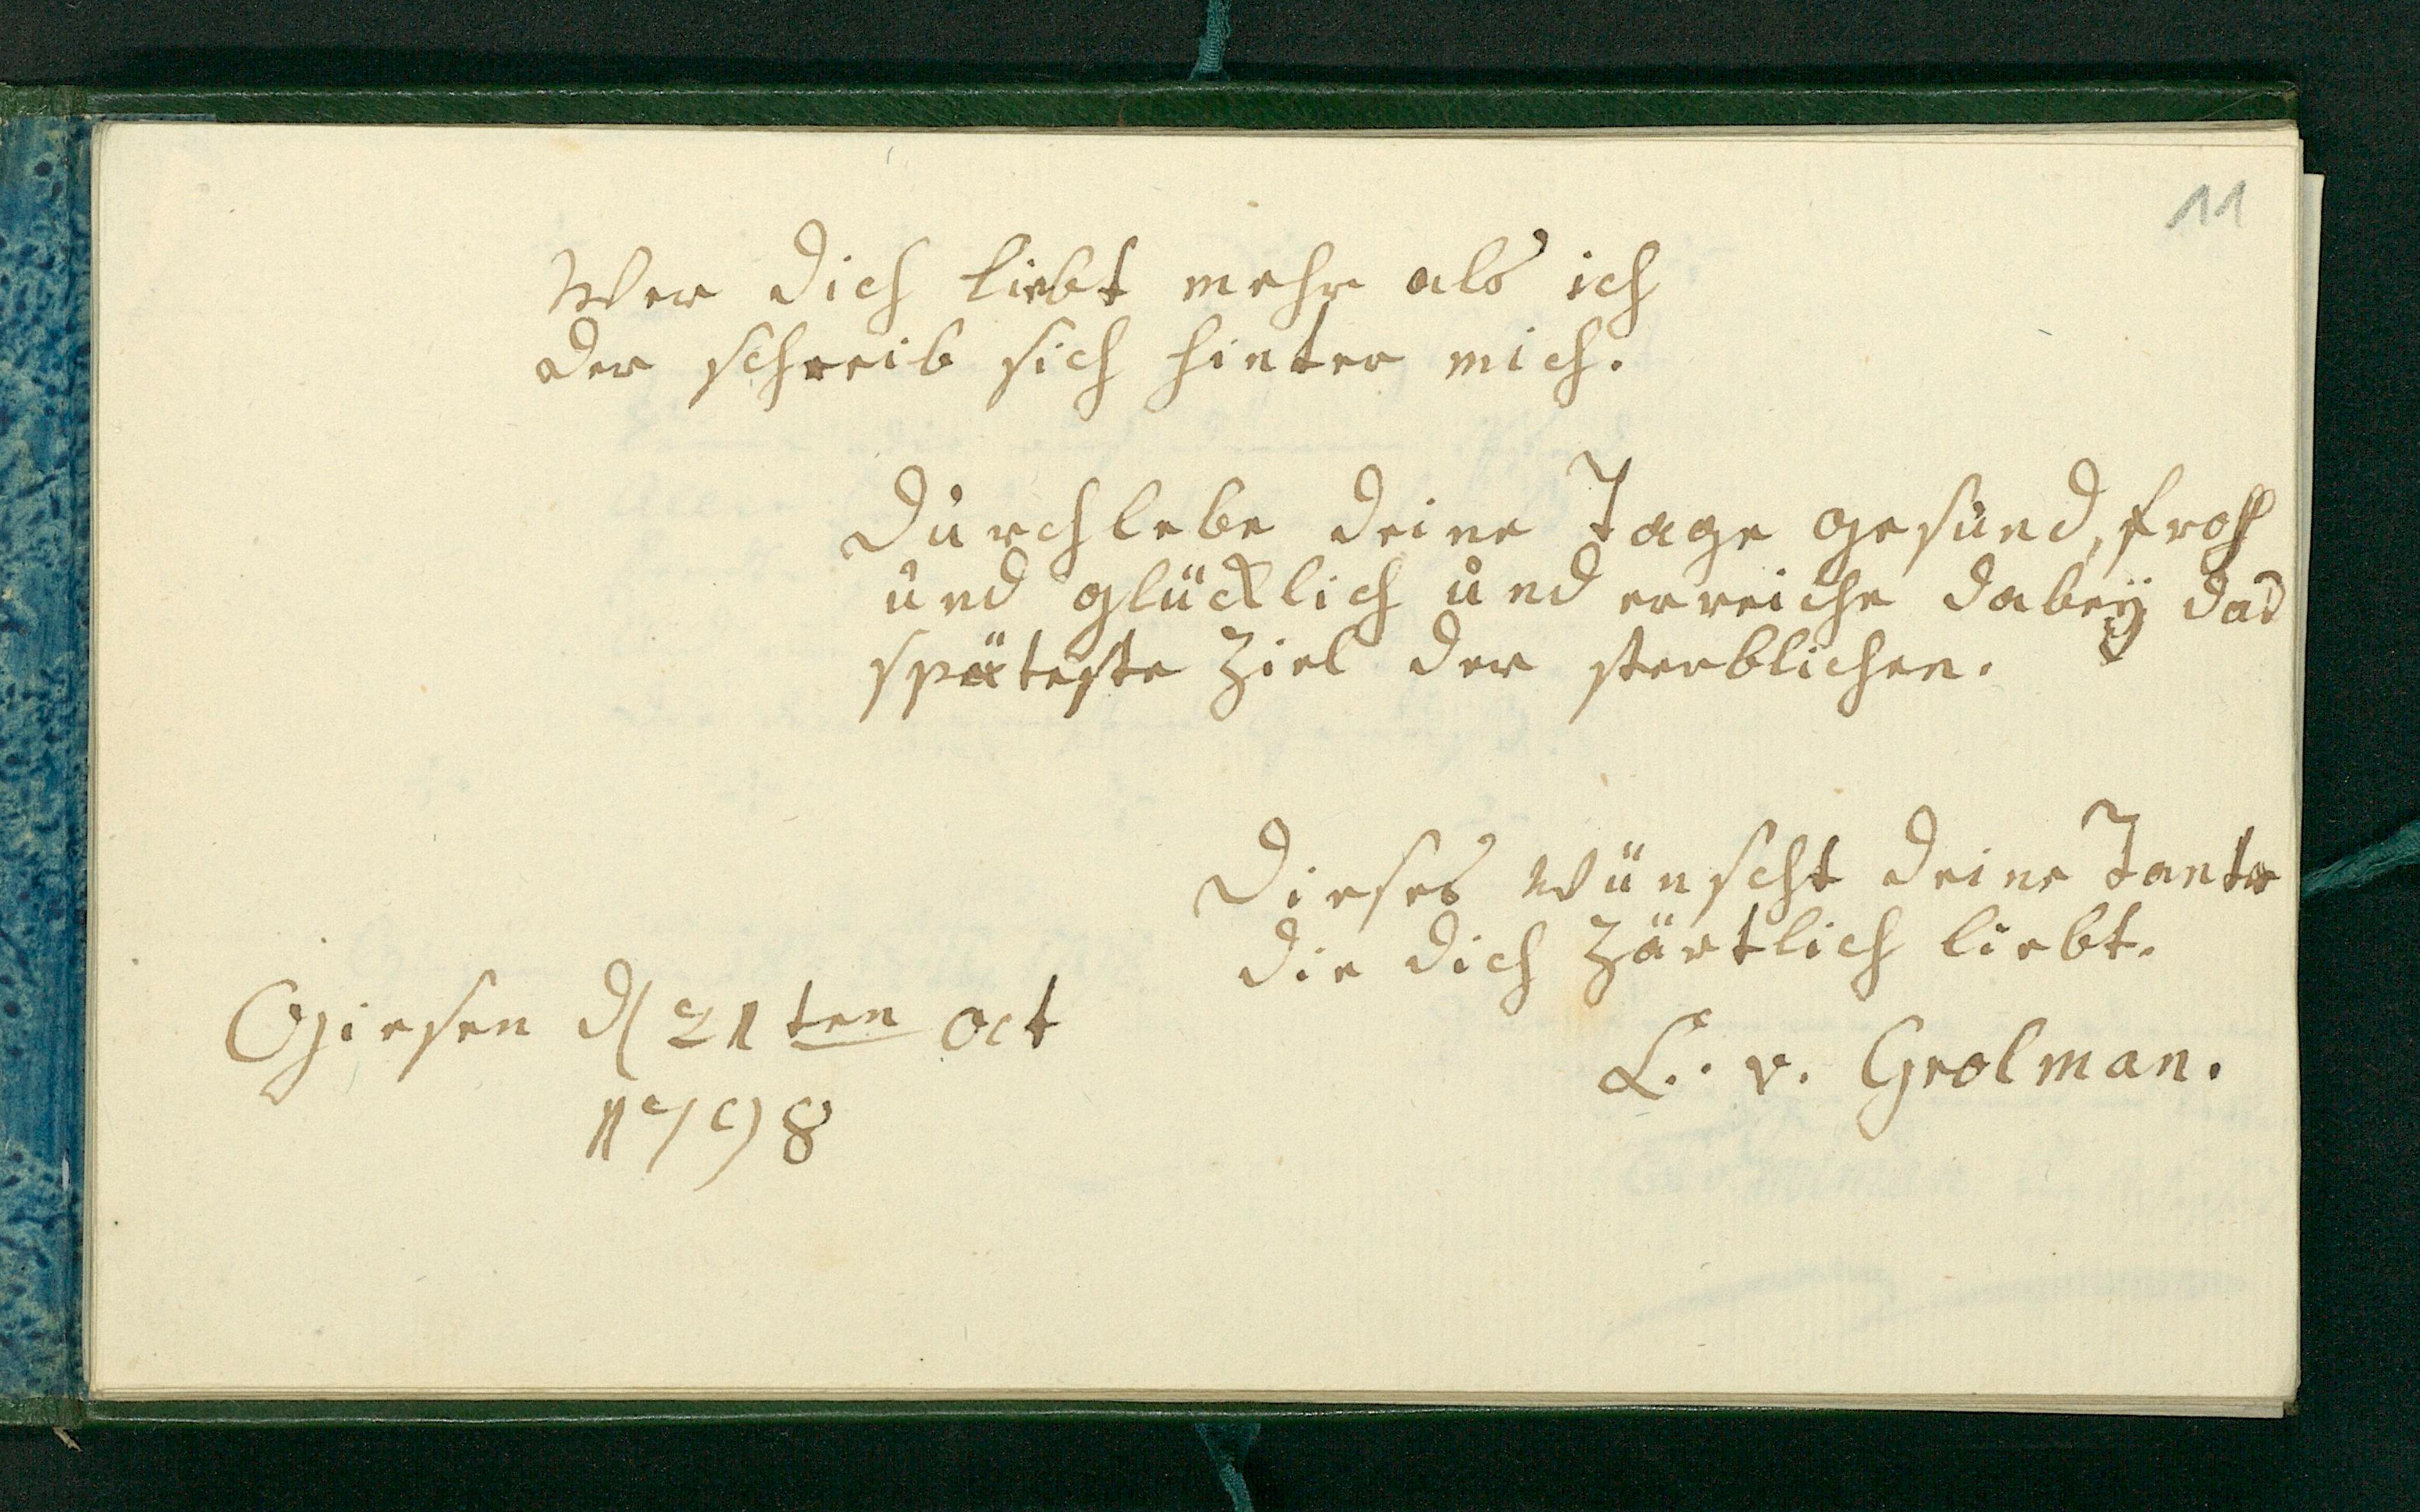 11
Wer dich liebt mehr als ich
der schreib sich hinter mich.
Durchlebe deine Tage gesund, froh
und glücklich und erreiche dabeÿ das
späteste Ziel der sterblichen.
Dieses wünscht deine Tante
die dich zärtlich liebt.
Giesen d 21ten oct
1798
L. v. Grolman.